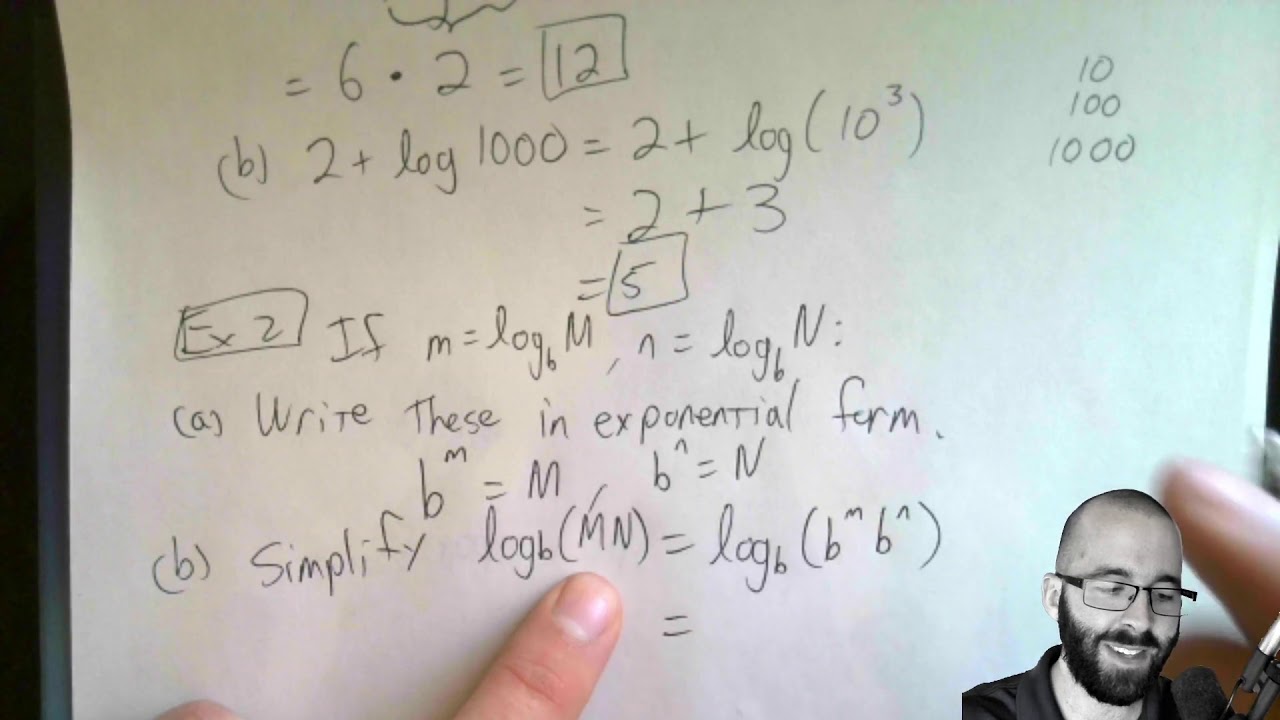 = 6 · 2 = 12
(b) 2 + log 1000 = 2 + log(10³)
= 2 + 3
= 5
10
100
1000
Ex 2 If m = log_b M, n = log_b N:
(a) Write these in exponential form.
b^m = M, b^n = N
(b) Simplify log_b(MN) = log_b(b^m b^n)
=